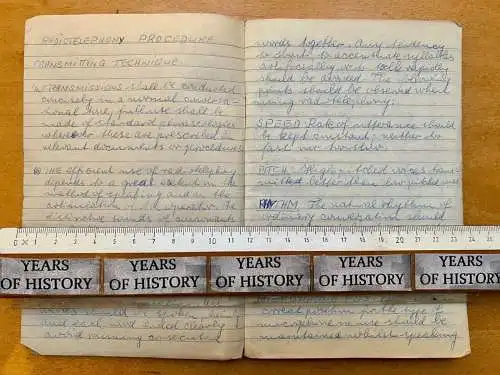 RADIOTELEPHONY PROCEDURE
TRANSMITTING TECHNIQUE
TRANSMISSIONS shall be conducted
concisely in a normal conversa-
tional tone, full use shall be
made of standard phraseologies
whenever these are prescribed in
relevant documents or procedures
THE efficient use of radiotelephony
depends to a great extent on the
method of speaking and on the
articulation of the operator. The
distinctive sounds of consonants
words together. Any tendency
to or accentuate syllables
artificially or to talk rapidly
should be avoided. The following
points should be observed when
using radiotelephony:
SPEED Rate of utterance should
be kept constant, neither too
fast nor too slow
PITCH High pitched voices trans-
mitted better than low pitched ones
RHYTHM The natural rhythm of
ordinary conversation should
0 X1 1 2 3 4 5 6 7 8 9 10 11 12 13 14 15 16 17 18 19 20 21 22 23 24 25
YEARS OF HISTORY YEARS OF HISTORY YEARS OF HISTORY YEARS OF HISTORY YEARS OF HISTORY
words should be spoken, being
and each, and ended clearly
avoid running consecutive
correct position for the type of
microphone in use should be
maintained whilst speaking